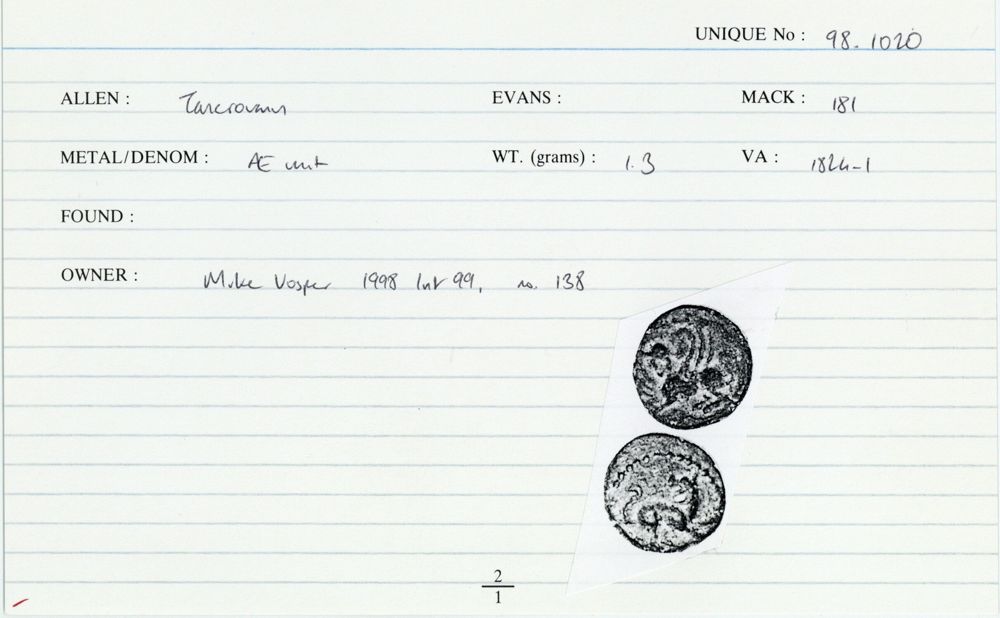 UNIQUE No : 98.1020
ALLEN : Tasciovanus EVANS : MACK : 181
METAL/DENOM : Æ unit WT. (grams) : 1.3 VA : 1824-1
FOUND :
OWNER : Mike Vosper 1998 list 99, no. 138
2
1